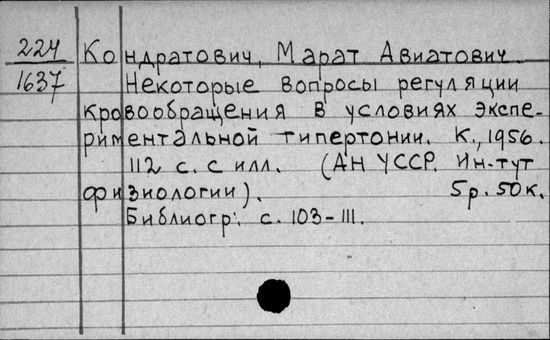 224 Кондратович, Марат Авиатович
1637 Некоторые вопросы регуляции
кровообращения в условиях экспе-
риментальной гипертонии. К., 1956.
112 с. с илл. (АН УССР. Ин-тут
физиологии). 5 р. 50 к.
Библиогр: с. 103-111.